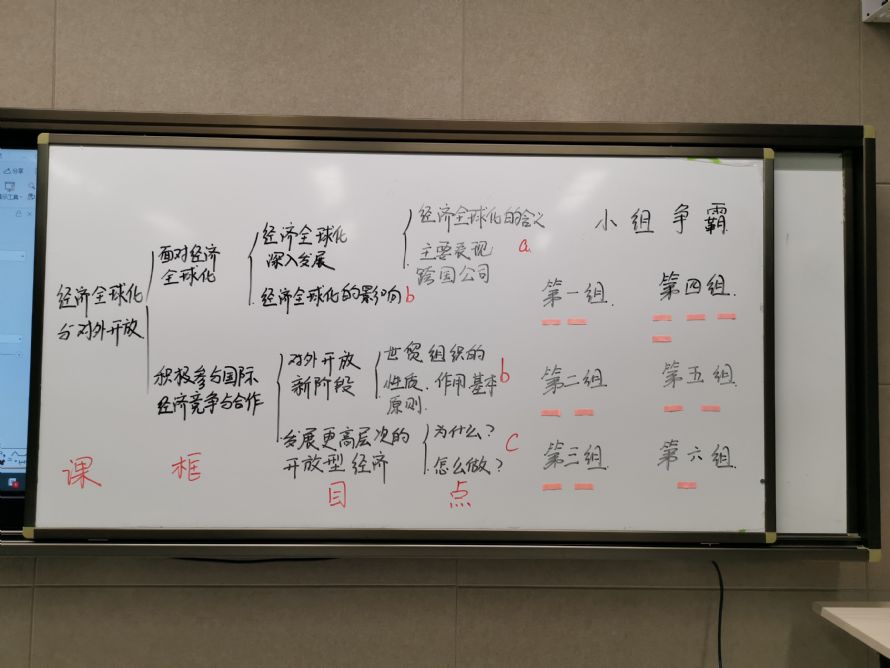 小组争霸
经济全球化
与对外开放
面对经济
全球化
经济全球化
深入发展
经济全球化的含义
主要表现
跨国公司
a
经济全球化的影响
b
积极参与国际
经济竞争与合作
对外开放
新阶段
世贸组织的
性质.作用基本
原则.
b
发展更高层次的
开放型经济
为什么?
怎么做?
c
课
框
目
点
第一组.
第四组.
第二组.
第五组.
第三组.
第六组.
分享